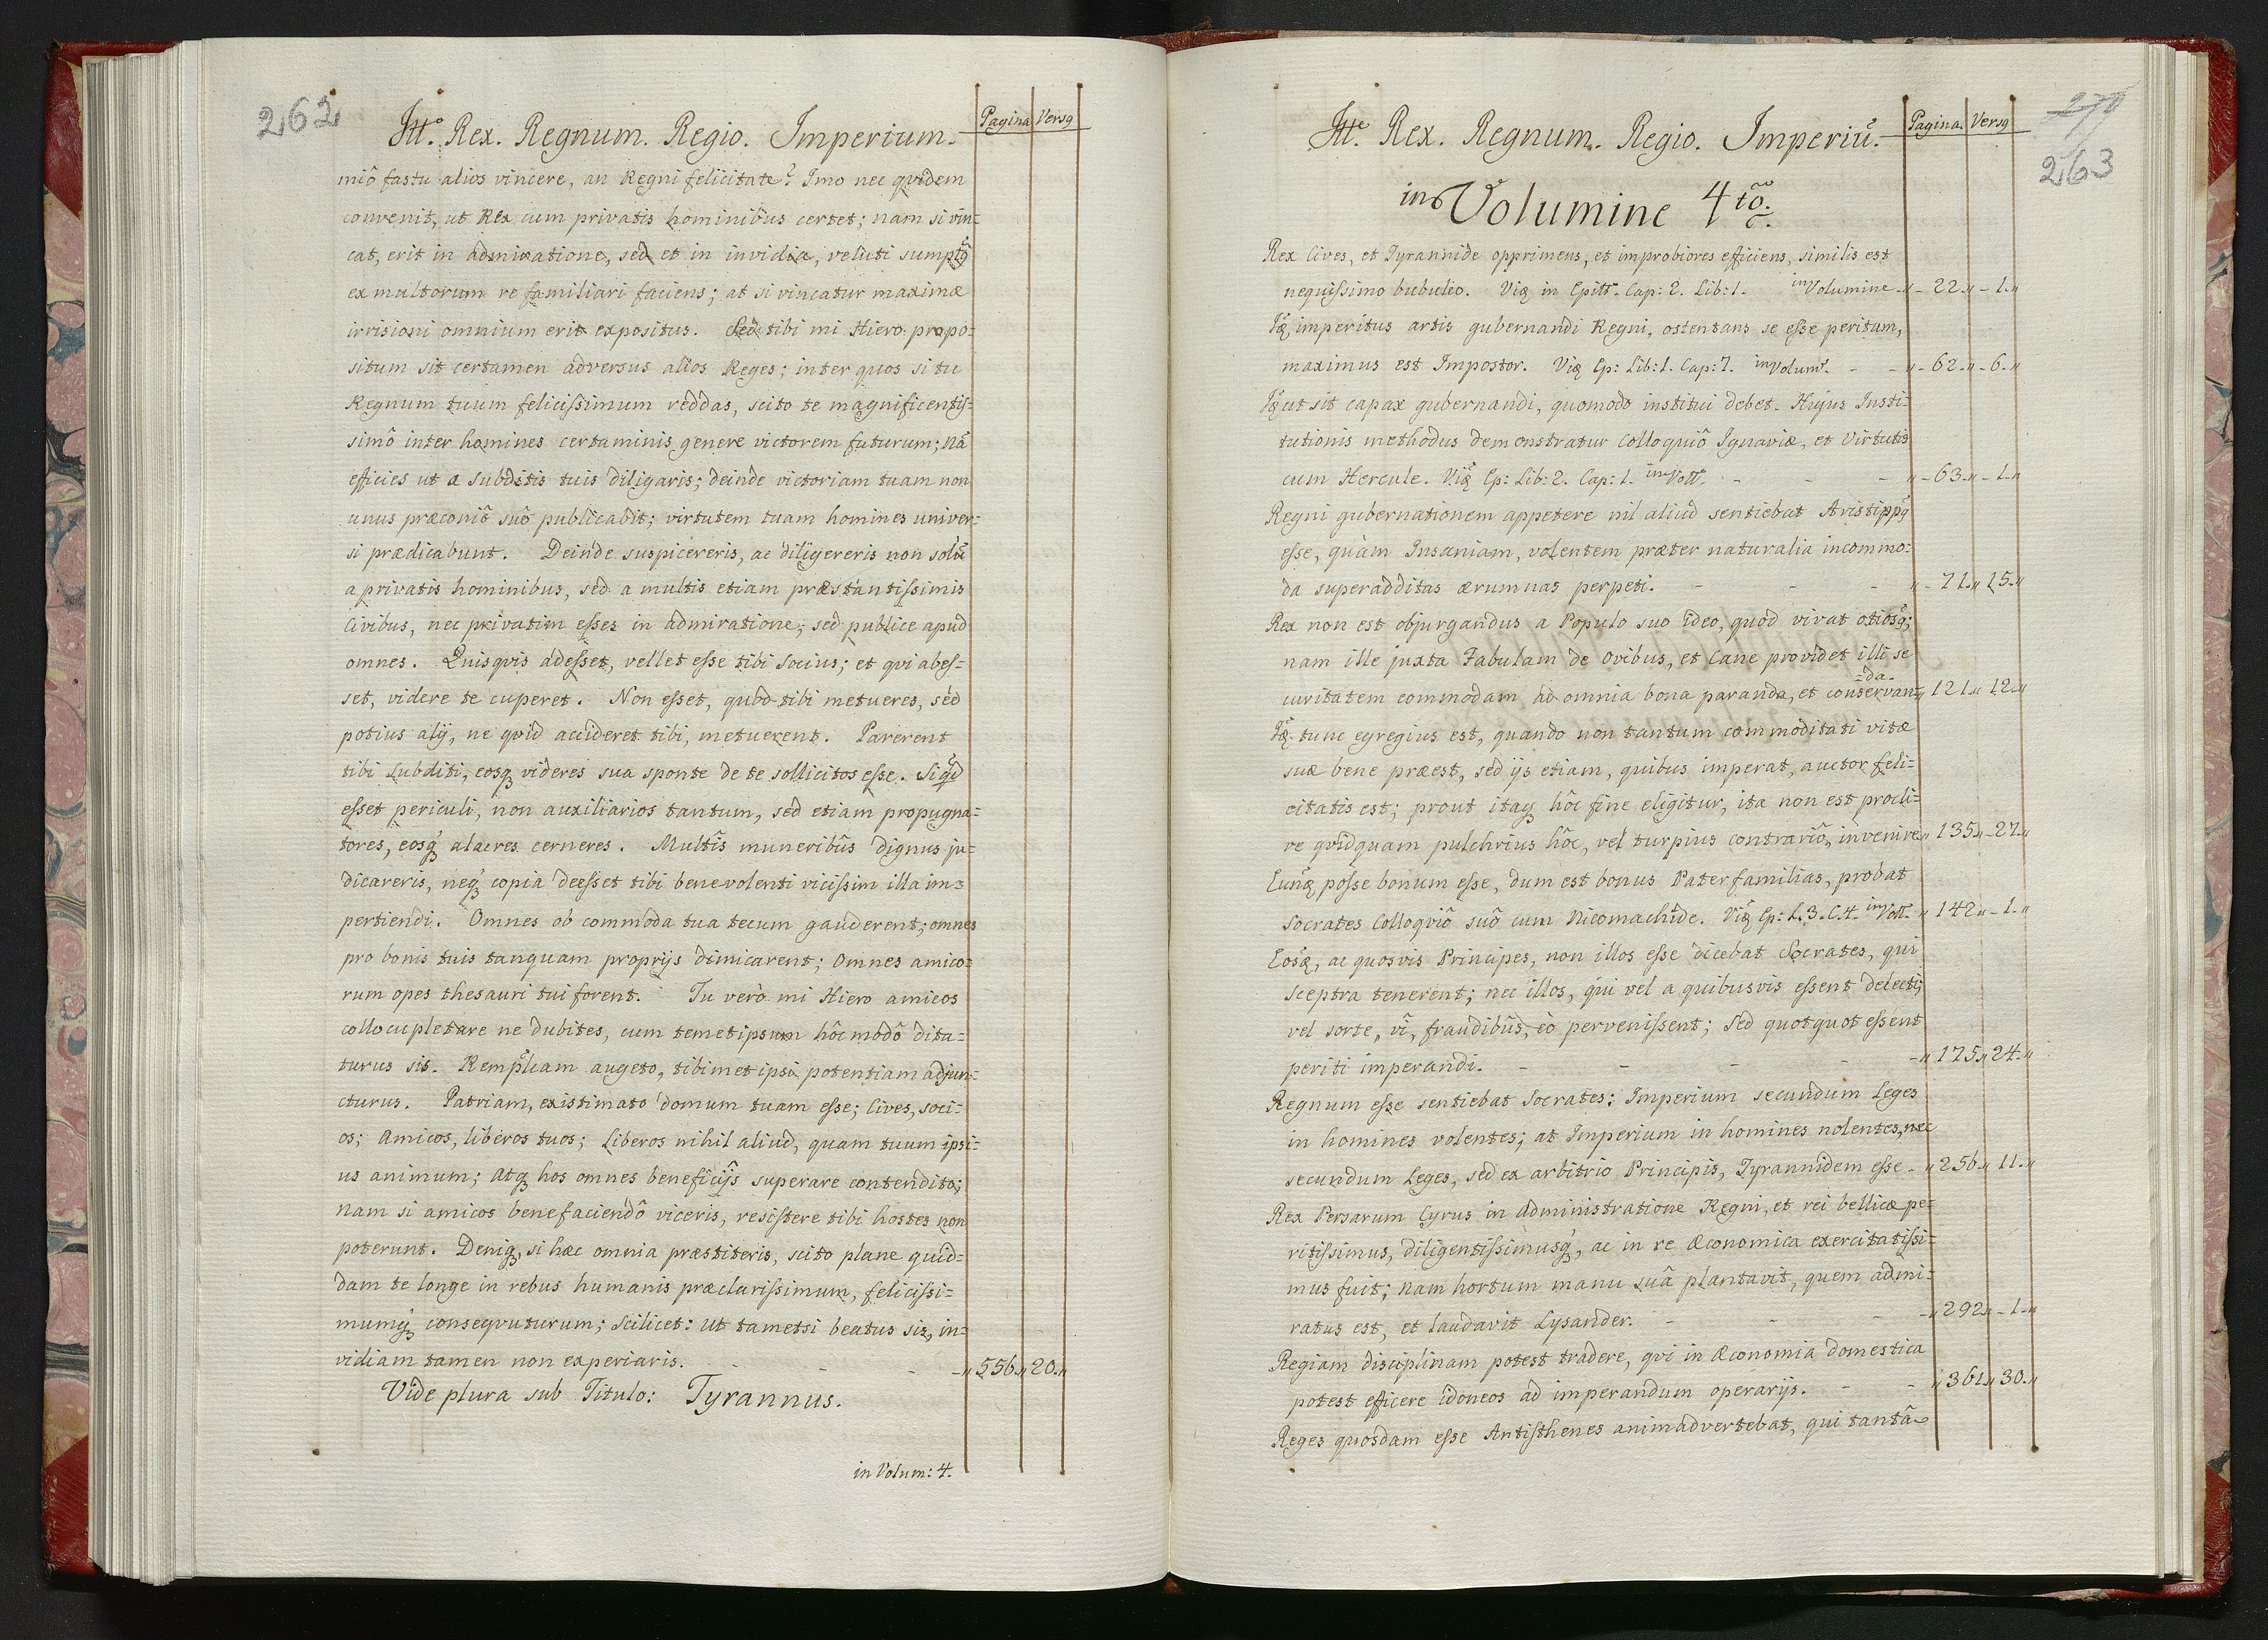 262
Itt.º Rex. Regnum. Regio. Imperium.
Pagina Versq
miô fastu alios vincere, an Regni felicitate? Imo nec qvidem
convenit, ut Rex cum privatis hominibus certet; nam si vin=
cat, erit in admiratione, sed et in invidia, veluti sumptq
ex multorum re familiari faciens; at si vincatur maximæ
irrisioni omnium erit expositus. Sed tibi mi Hiero propo=
situm sit certamen adversus alios Reges; inter quos si tu
Regnum tuum felicissimum reddas, scito te magnificentis=
simô inter homines certaminis genere victorem futurum; nã
efficies ut a subditis tuis diligaris; deinde victoriam tuam non
unus præconiô suô publicabit; virtutem tuam homines univer=
si prædicabunt. Deinde suspicereris, ac diligereris non solũ
a privatis hominibus, sed a multis etiam præstantissimis
Civibus, nec privatim esses in admiratione, sed publice apud
omnes. Quisqvis adesset, vellet esse tibi socius; et qvi abes=
set, videre te cuperet. Non esset, quod tibi metueres, sed
potius alij, ne qvid accideret tibi, metuerent. Parerent
tibi subditi, eosq videres sua sponte de te sollicitos esse. Si qd
esset periculi, non auxiliarios tantum, sed etiam propugna=
tores, eosq alacres cerneres. Multis muneribus dignus ju=
dicareris, neq copia deesset tibi benevolenti vicissim illa im=
pertiendi. Omnes ob commoda tua tecum gauderent; omnes
pro bonis tuis tanquam proprijs dimicarent; omnes amico=
rum opes thesauri tui forent. Tu verò mi Hiero amicos
collocupletare ne dubites, cum temet ipsum hôc modô dita=
turus sis. Rempłcam augeto, tibimet ipsi potentiam adjun=
cturus. Patriam, existimato domum tuam esse; Cives, soci=
os; amicos, liberos tuos; Liberos nihil aliud, quam tuum ipsi=
us animum; atq hos omnes beneficijs superare contendito;
nam si amicos benefaciendô viceris, resistere tibi hostes non
poterunt. Deniq, si hæc omnia præstiteris, scito plane quid=
dam te longe in rebus humanis præclarissimum, felicissi=
mumq conseqvuturum; scilicet: ut tametsi beatus sis, in=
vidiam tamen non experiaris. - - - „ 556.„ 20.„
Vide plura sub Titulo: Tyrannus.
in Volum: 4.
270
263
Itt.º Rex. Regnum. Regio. Imperiũ.
Pagina. Versq
in Volumine 4to.
Rex Cives, et Tyrannide opprimens, et improbiores efficiens, similis est
nequissimo bubulco. Viq in Epitt. Cap: 2. Lib: 1. in Volumine - „ - 22.„ - 1.„
Iq imperitus artis gubernandi Regni, ostentans se esse peritum,
maximus est Impostor. Viq Ep: Lib: 1. Cap: 7. in Volum. - - „ - 62.„ - 6.„
Iq ut sit capax gubernandi, quomodo institui debet. Hujus Insti=
tutionis methodus demonstratur Colloquiô Ignaviæ, et Virtutis
cum Hercule. Viq Ep: Lib: 2. Cap: 1. in Voll. - - - „ - 63.„ - 1.„
Regni gubernationem appetere nil aliud sentiebat Aristippq
esse, quàm Insaniam, volentem præter naturalia incommo=
da superadditas ærumnas perpeti. - - - „ - 71.„ 15.„
Rex non est objurgandus a Populo suo ideo, quod vivat otiosq;
nam ille juxta Fabulam de Ovibus, et Cane providet illi se
curitatem commodam ad omnia bona paranda, et conservan= „ 121.„ 12.„
=da.
Iq tunc egregius est, quando non tantum commoditati vitæ
suæ bene præest, sed ijs etiam, quibus imperat, auctor feli=
citatis est; prout itaq hôc fine eligitur, ita non est procli=
ve qvidquam pulchrius hôc, vel turpius contrariô, invenire „ 135.„ - 27.„
Eunq posse bonum esse, dum est bonus Pater familias, probat
Socrates Colloqviô suô cum Nicomachide. Viq Ep: L. 3. C. 4. in Voll. - „ 142.„ - 1.„
Eosq, ac quosvis Principes, non illos esse dicebat Socrates, qui
sceptra tenerent; nec illos, qui vel a quibusvis essent delecti,
vel sorte, vi, fraudibus, eò pervenissent; sed quotquot essent
periti imperandi. - - - - - „ 175.„ 24.„
Regnum esse sentiebat Socrates: Imperium secundum Leges
in homines volentes; at Imperium in homines nolentes, nec
secundum Leges, sed ex arbitrio Principis, Tyrannidem esse - „ 256.„ 11.„
Rex Persarum Cyrus in administratione Regni, et rei bellicæ pe=
ritissimus, diligentissimusq, ac in re Œconomica exercitatissi=
mus fuit; nam hortum manu suâ plantavit, quem admi=
ratus est, et laudavit Lysander. - - - „ 292.„ - 1.„
Regiam disciplinam potest tradere, qvi in Œconomia domestica
potest efficere idoneos ad imperandum operarijs. - - „ 361.„ 30.„
Reges quosdam esse Antisthenes animadvertebat, qui tantâ